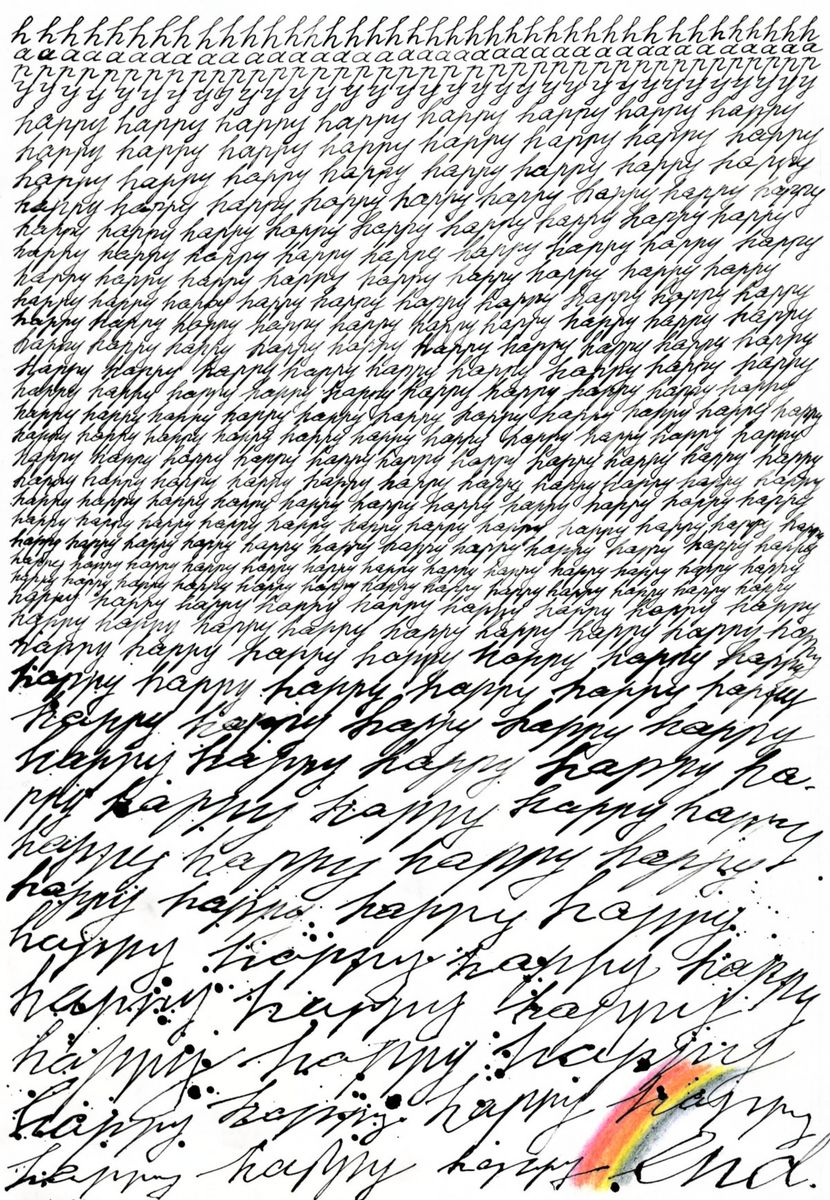 h h h h h h h h h h h h h h h h h h h h h h h h h h h h h h h h h h h h
a a a a a a a a a a a a a a a a a a a a a a a a a a a a a a a a a a a a
p p p p p p p p p p p p p p p p p p p p p p p p p p p p p p p p p p p p
y y y y y y y y y y y y y y y y y y y y y y y y y y y y y y y y
happy happy happy happy happy happy happy happy
happy happy happy happy happy happy happy happy
happy happy happy happy happy happy happy happy
happy happy happy happy happy happy happy happy happy
happy happy happy happy happy happy happy happy happy
happy happy happy happy happy happy happy happy happy
happy happy happy happy happy happy happy happy happy
happy happy happy happy happy happy happy happy happy happy
happy happy happy happy happy happy happy happy happy happy
happy happy happy happy happy happy happy happy happy happy
happy happy happy happy happy happy happy happy happy
happy happy happy happy happy happy happy happy happy happy
happy happy happy happy happy happy happy happy happy happy happy
happy happy happy happy happy happy happy happy happy happy happy
happy happy happy happy happy happy happy happy happy happy happy
happy happy happy happy happy happy happy happy happy happy happy
happy happy happy happy happy happy happy happy happy happy happy
happy happy happy happy happy happy happy happy happy happy happy happy
happy happy happy happy happy happy happy happy happy happy happy happy
happy happy happy happy happy happy happy happy happy happy happy happy happy
happy happy happy happy happy happy happy happy happy happy happy happy happy
happy happy happy happy happy happy happy happy happy
happy happy happy happy happy happy happy happy happy
happy happy happy happy happy happy happy
happy happy happy happy happy happy
happy happy happy happy happy
happy happy happy happy ha-
ppy happy happy happy happy
happy happy happy happy
happy happy happy happy
happy happy happy happy
happy happy happy
happy happy happy
happy happy happy happy
happy happy happy End.